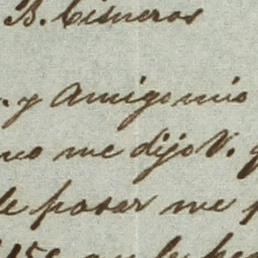 B. Cisneros
y Amigo mio
me dijo V.
de pasar me